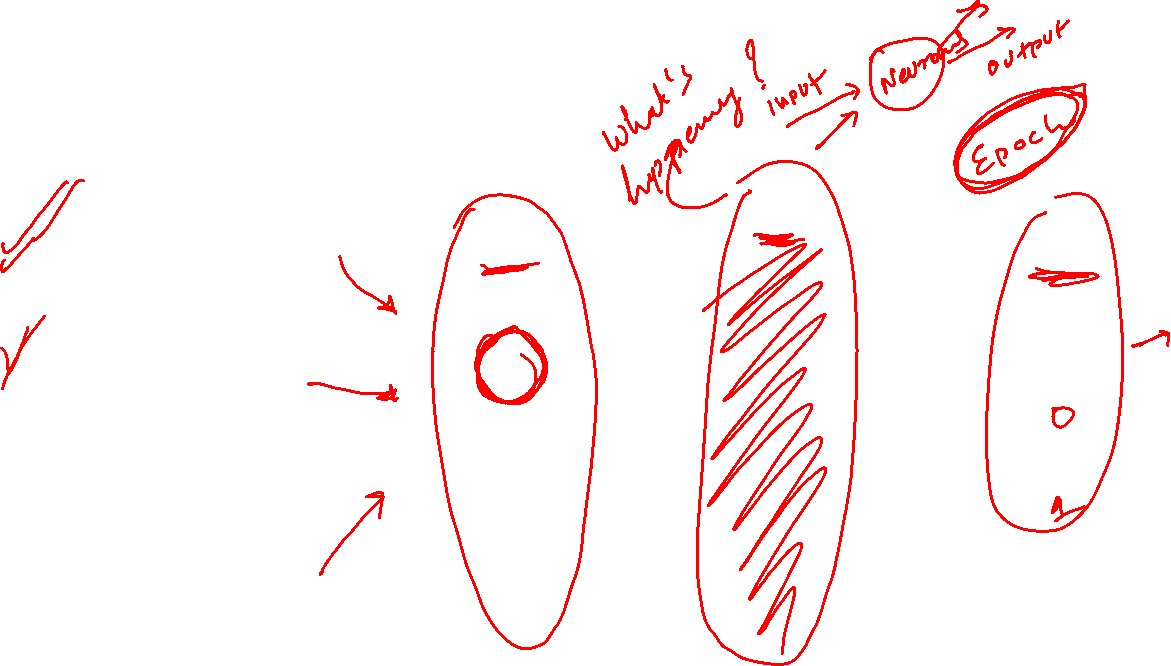 What's
happening?
input
Neurons
output
Epoch